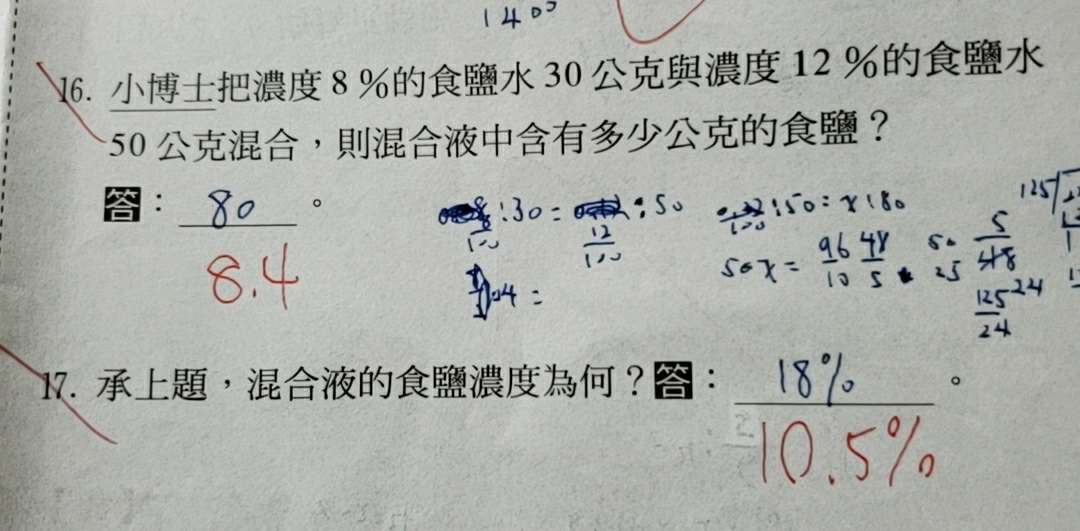 1400
16. 小博士把濃度 8 %的食鹽水 30 公克與濃度 12 %的食鹽水
50 公克混合，則混合液中含有多少公克的食鹽？
答：80。
8.4
8/100 : 30 = 12/100 : 50
50x = 96/10 48/5
50 25
5/48
125/24 24
125
17. 承上題，混合液的食鹽濃度為何？答：18%。
10.5%